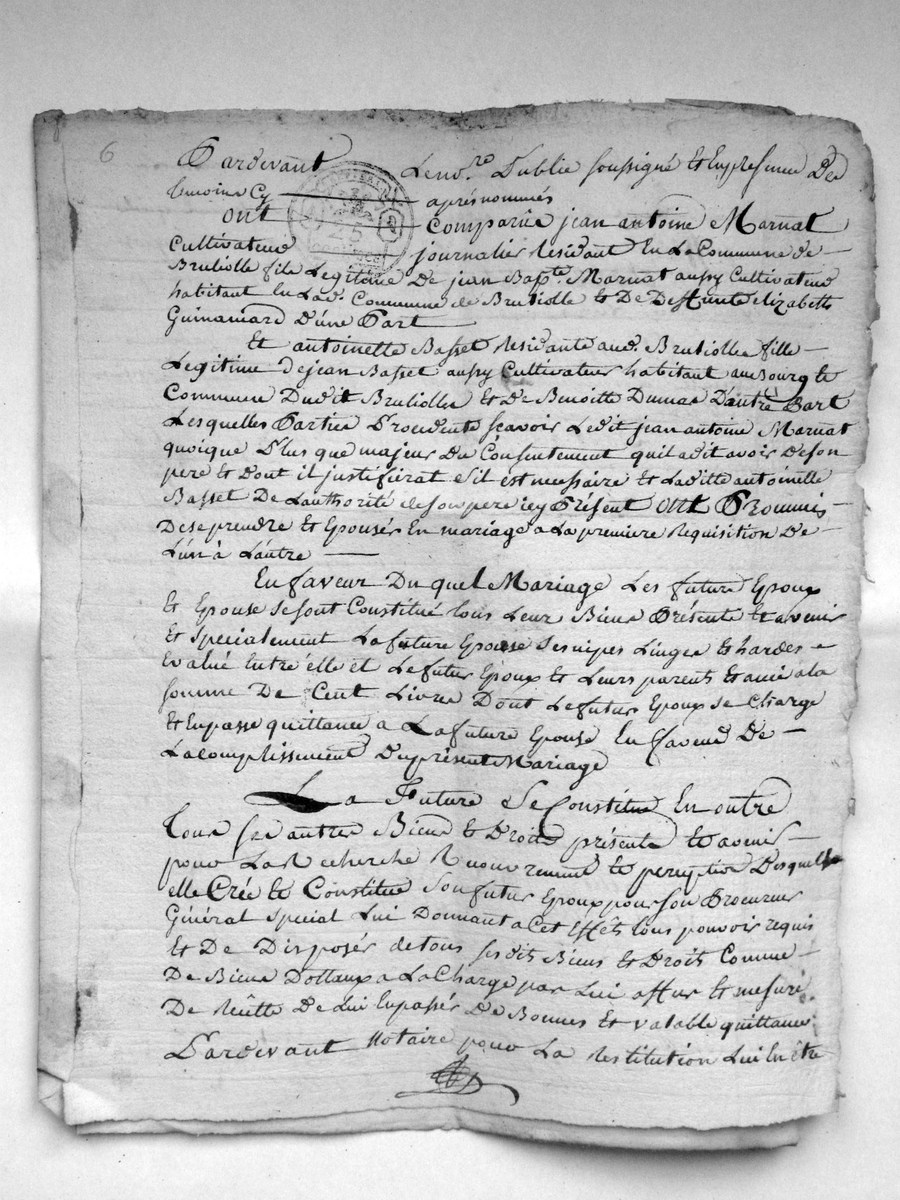 6
Pardevant Le no.re Public soussigné et En presence Des
temoins Cy après nommés
ont comparüe jean antoine Marnat
Cultivateur journalier Residant En La Commune de
Brulliolle fils Legitime De jean Bapte. Marnat aussy Cultivateur
habitant En Lad. Commune de Brulliolle et De Deffunte Elizabeth
Guinamard D'une Part
Et antoinette Basset Residante aud. Brulliolles fille
Legitime De jean Basset aussy Cultivateur habitant au Bourg et
Commune Dudit Brulliolles et De Benoitte Dumas D'autre Part
Lesquelles Parties Procedente sçavoir Ledit jean antoine Marnat
quoique Plus que majeur Du Consentement quil a dit avoir De son
pere et Dont il justifiera s'il est nessaire et Laditte antoinette
Basset De L'authorité de son pere icy Présent ont Promis
De se prendre et Epouser En mariage a La premiere Requisition De
L'un à L'autre
En faveur Du quel Mariage Les future Epoux
Et Epouse se sont Constitué tous Leur Biens Présents et avenir
Et specialement La future Epouse ses nipes Linges et hardes
Evalué Entre elle et Le futur Epoux et Leurs parents et amis a la
somme De Cent Livres Dont Le futur Epoux se Charge
et En passe quittance a La future Epouse En faveur De
Lacomplissement Du présent Mariage
La Future Se Constitue En outre
tous ses autres Biens et Droits présents et avenir
pour La Recherche Recouvrement et perception Desquels
elle Crée et Constitue son futur Epoux pour son Procureur
Général special Lui Donnant a Cet Effêts tous pouvoir requis
Et De Disposér de tous sesdits Biens et Droit Comme
De Biens Dottaux a La Charge par Lui assur et mesure
De Reütte De Lui En passér De Bonnes et valable quittance
Pardevant Notaire pour La Restitution Lui En être